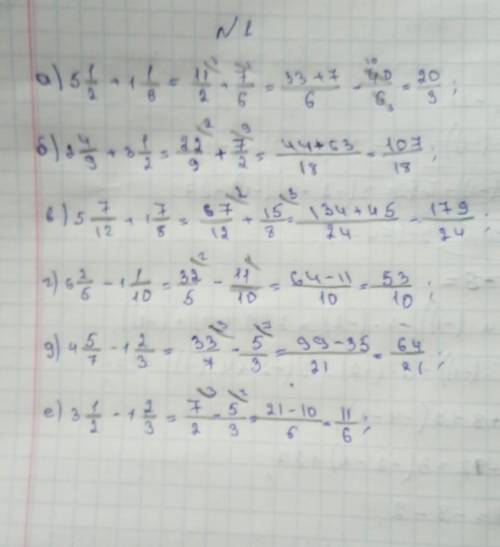 N 1
а) 5 1/2 + 1 1/6 = 11/2 + 7/6 = 33+7/6 = 40/6 = 20/3;
б) 2 4/9 + 3 1/2 = 22/9 + 7/2 = 44+63/18 = 107/18;
в) 5 7/12 + 1 7/8 = 67/12 + 15/8 = 134+45/24 = 179/24;
г) 6 2/5 - 1 1/10 = 32/5 - 11/10 = 64-11/10 = 53/10;
д) 4 5/7 - 1 2/3 = 33/7 - 5/3 = 99-35/21 = 64/21;
е) 3 1/2 - 1 2/3 = 7/2 - 5/3 = 21-10/6 = 11/6;